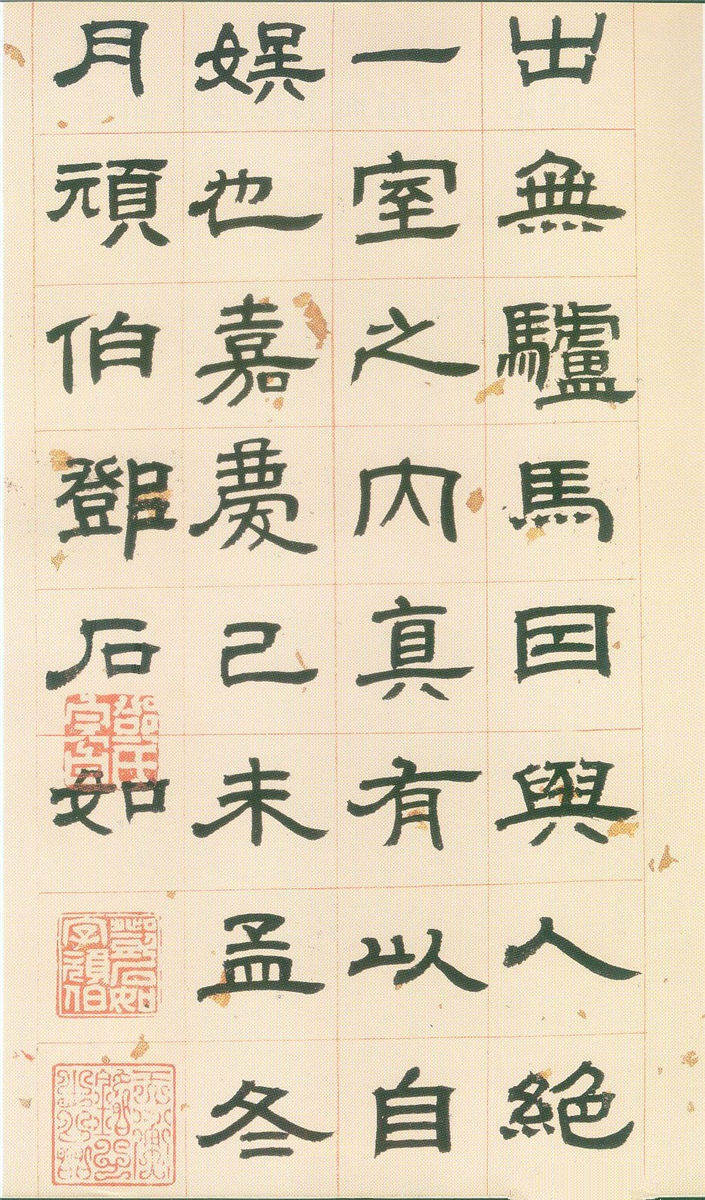 出無驢馬囙與人絕
一室之内真有以自
娛也嘉慶己未孟冬
月頑伯鄧石如
鄧石如字頑伯